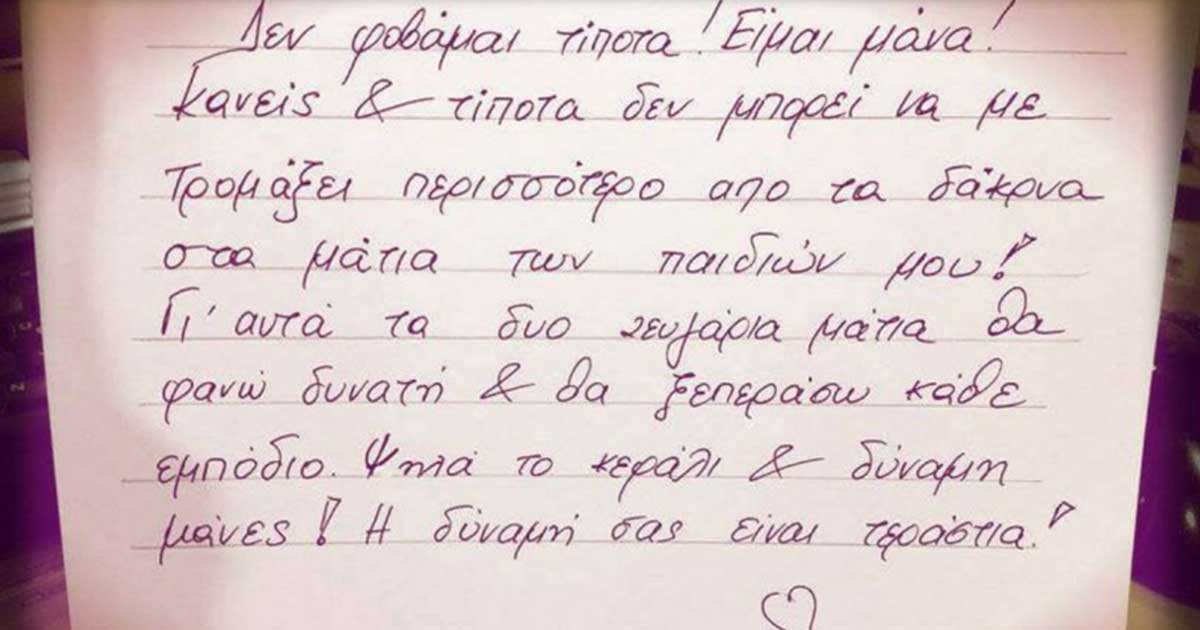 Δεν φοβάμαι τίποτα! Είμαι μάνα!
Κανείς & τίποτα δεν μπορεί να με
τρομάξει περισσότερο απο τα δάκρυα
στα μάτια των παιδιών μου!
Γι' αυτά τα δυο ζευγάρια μάτια θα
φανώ δυνατή & θα ξεπεράσω κάθε
εμπόδιο. Ψηλά το κεφάλι & δύναμη
μάνες! Η δύναμή σας είναι τεράστια!